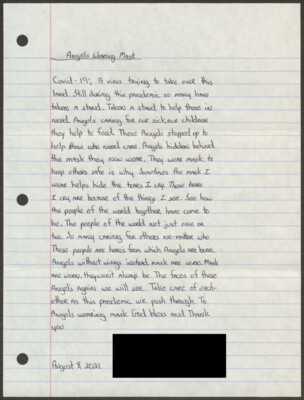 Angels Wearing Mask
Covid-19; A virus trying to take over this
land. Still during this pandemic so many have
taken a stand. Taken a stand to help those in
need. Angels caring for our sick, our children
they help to feed. These Angels stepped up to
help those who need care. Angels hidden behind
the mask they now wear. They wear mask, to
keep others safe is why. Sometimes the mask I
wear helps hide the tears I cry. These tears
I cry are because of the things I see. See how
the people of the world together have come to
be. The people of the world not just one or
two. So many caring for others no-matter who
These people are heros from which Angels are born.
Angels without wings instead mask are worn. Mask
are worn, they won't always be. The faces of these
Angels again we will see. Take care of each-
other as this pandemic we push through. To
Angels wearing mask God bless and Thank
you
August 8, 2021